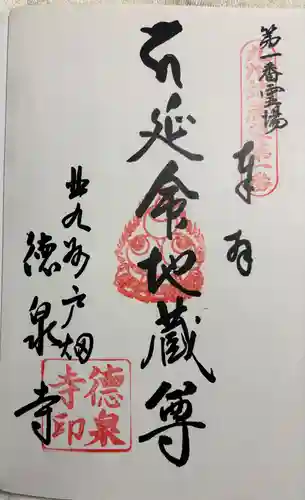 第一番霊場
奉拝
延命地蔵尊
北九州戸畑
徳泉寺
徳泉
寺印